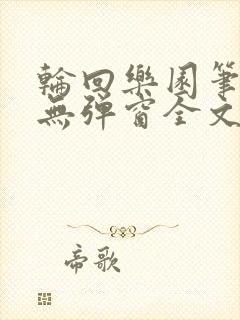 輪回樂園筆
無彈窗全文
帝歌